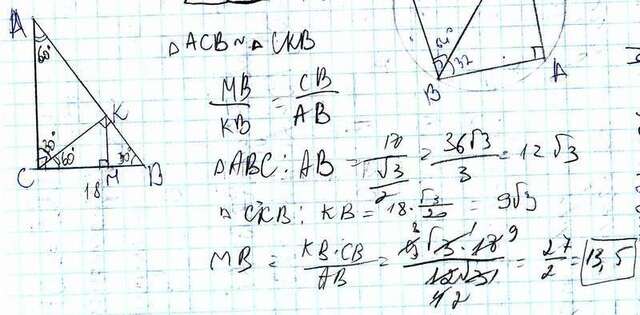 A
60°
K
30°
60°
30°
C
M
B
18
△ACB ~ △CKB
MB/KB = CB/AB
64°
32
B
A
△ABC: AB = 18/(√3/2) = 36√3/3 = 12√3
△CKB: KB = 18·√3/2 = 9√3
MB = KB·CB/AB = 9√3·18/12√3 = 27/2 = 13,5